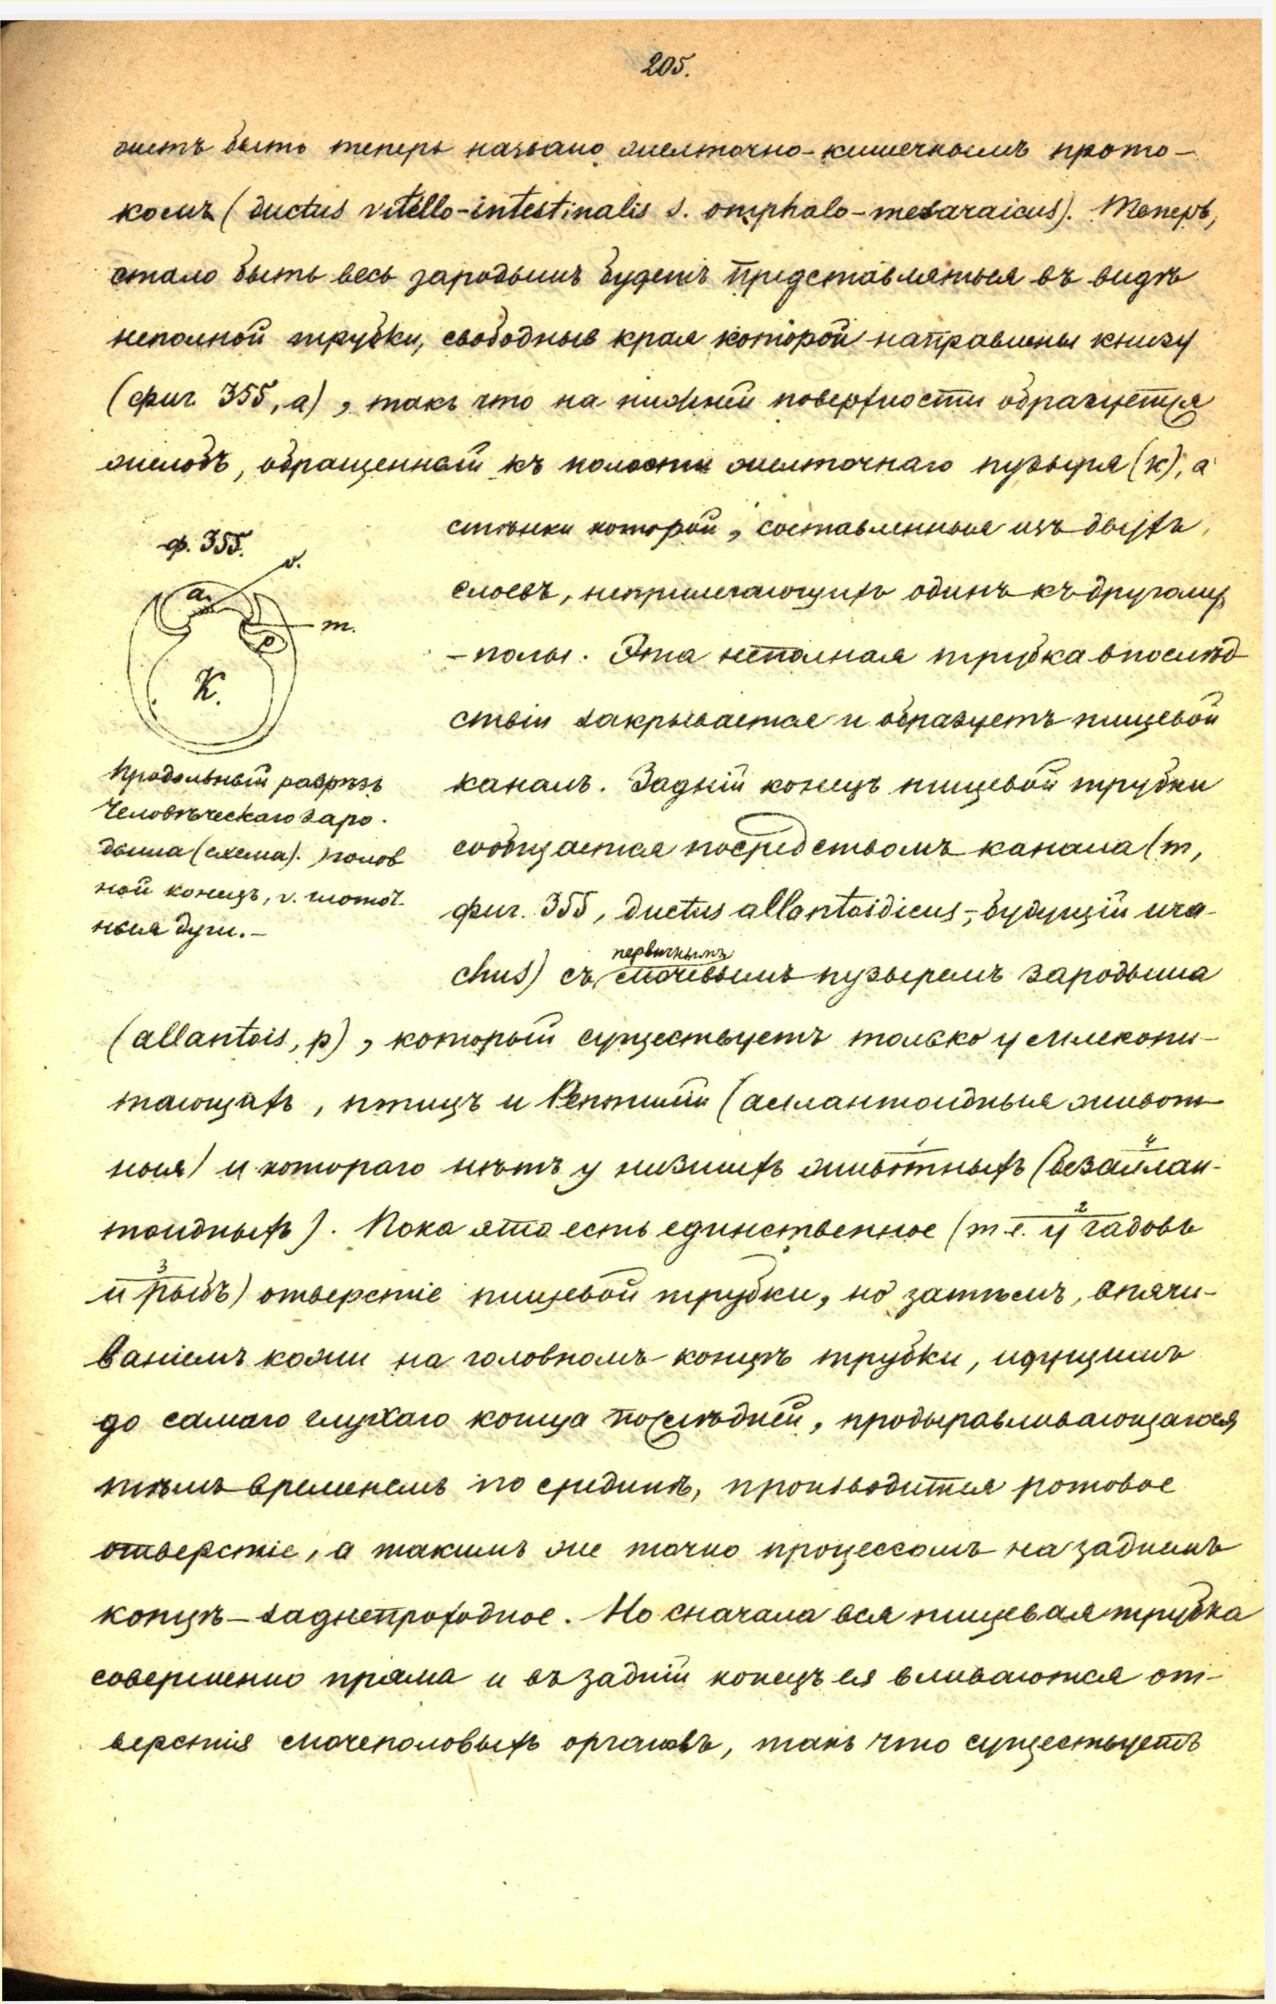 205.
жетъ быть теперь названо желточно-кишечнымъ прото-
комъ (ductus vitello-intestinalis s. omphalo-mesaraicus). Теперь,
стало быть весь зародышъ будетъ представляться въ видѣ
неполной трубки, свободные края которой направлены книзу
(фиг. 355, а), такъ что на нижней поверхности образуется
желобъ, обращенный къ полости желточнаго пузыря (к), а
стѣнки которой, составленныя изъ двухъ
слоевъ, неприлегающихъ одинъ къ другому
-полы. Эта неполная трубка впослѣд
ствіи закрывается и образуетъ пищевой
каналъ. Задній конецъ пищевой трубки
сообщается посредствомъ канала (m,
фиг. 355, ductus allantoidicus,-будущій ura-
chus) съ первичнымъ мочевымъ пузыремъ зародыша
ф. 355.
v.
a.
m.
p
K.
Продольный разрѣзъ
Человѣческаго заро-
дыша (схема). голов
ной конецъ, v. глоточ.
ныя дуги.-
(allantois, p), который существуетъ только у млекопи-
тающихъ, птицъ и Рептилій (аллантоидныя живот-
ныя) и котораго нѣтъ у низшихъ животныхъ (безаллан-
тоидныхъ). Пока это есть единственное (т.е. у гадовъ
и рыбъ) отверстіе пищевой трубки, но затѣмъ, впячи-
ваніемъ кожи на головномъ концѣ трубки, идущимъ
до самаго глухаго конца послѣдней, продыравливающагося
тѣмъ временемъ по срединѣ, производится ротовое
отверстіе, а такимъ же точно процессомъ на заднемъ
концѣ-заднепроходное. Но сначала вся пищевая трубка
совершенно пряма и въ задній конецъ ея вливаются от-
верстія мочеполовыхъ органовъ, такъ что существуетъ